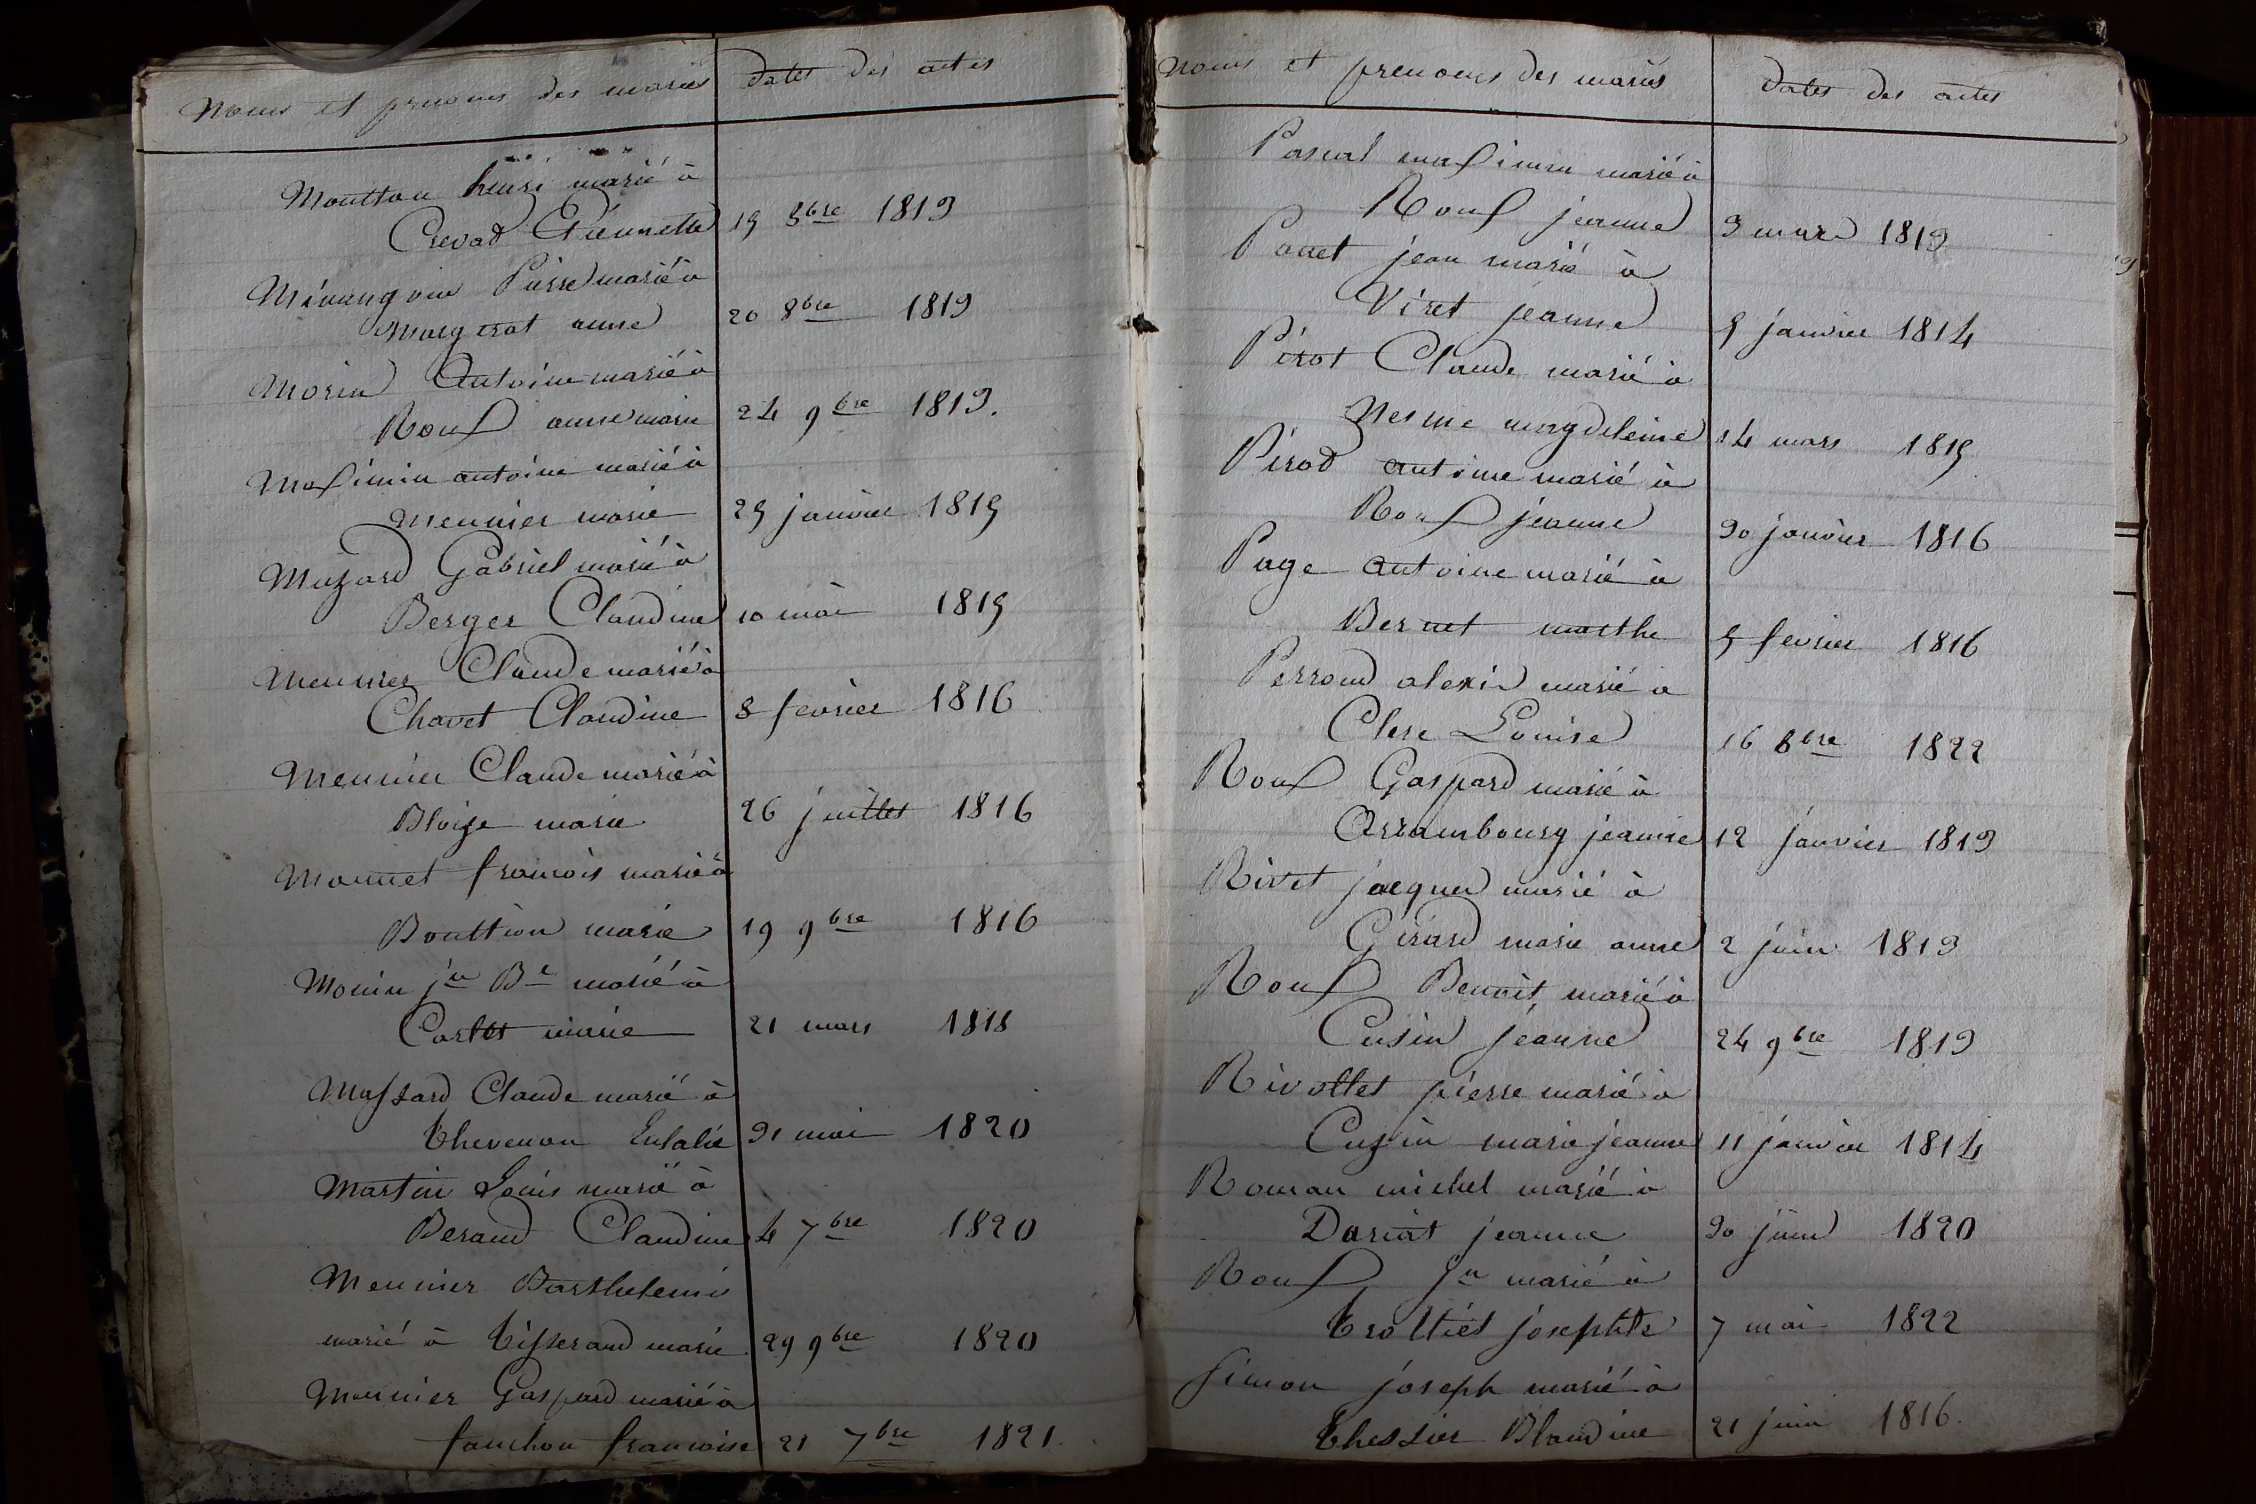 Noms et prenoms des mariés dates des actes
Moutton henri marié à
Crevad Pierrette 15 8bre 1813
Mévangoin Pierre marié à
Margerat anne 20 8bre 1813
Morin Antoine marié à
Roux anne marie 24 9bre 1813.
Maximin antoine marié à
Meunier marie 25 janvier 1815
Mazard Gabriel marié à
Berger Claudine 10 mai 1815
Meunier Claude marié à
Chavet Claudine 8 fevrier 1816
Meunier Claude marié à
Bloise marie 26 juillet 1816
Monnet francois marié à
Bouttion marie 19 9bre 1816
Monin jn Bte marié à
Cortet marie 21 mars 1818
Massard Claude marié à
thevenon Eulalie 31 mai 1820
Martin Louis marié à
Beraud Claudine 4 7bre 1820
Meunier Barthelemi
marié à tisserand marie 29 9bre 1820
Meunier Gaspard marié à
fauchon francoise 21 7bre 1821.
Noms et prenoms des mariés dates des actes
Pascal maximin marié à
Roux jeanne 3 mars 1813
Ponet jean marié à
Viret jeanne 5 janvier 1814
Pérot Claude marié à
Nesme magdeleine 14 mars 1815
Pérod antoine marié à
Roux jeanne 30 janvier 1816
Page antoine marié à
Bernet marthe 5 fevrier 1816
Perroud alexis marié à
Clerc Louise 16 8bre 1822
Roux Gaspard marié à
Arrambourg jeanne 12 janvier 1813
Rivet jacques marié à
Girard marie anne 2 juin 1813
Roux Benoit marié à
Cusin jeanne 24 9bre 1813
Rivollet pierre marié à
Cuzin marie jeanne 11 janvier 1814
Roman michel marié à
Dariat jeanne 30 juin 1820
Roux jn marié à
trolliet josephte 7 mai 1822
Simon joseph marié à
thessier Blandine 21 juin 1816.